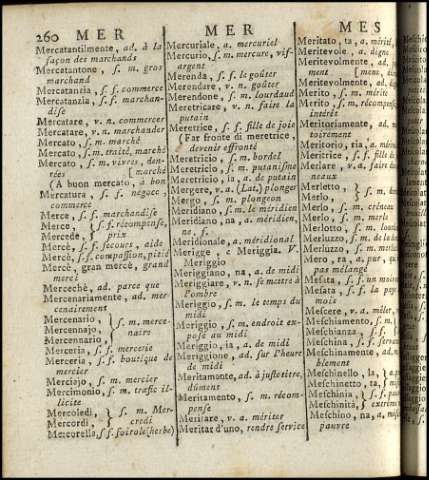 260 MER MER MES
Mercatantilmente, ad. à la
façon des marchands
Mercatantone, ſ. m. gros
marchand
Mercatanzia, ſ. f. commerce
Mercatanzia, ſ. f. marchan-
diſe
Mercatare, v. n. commercer
Mercatare, v. n. marchander
Mercato, ſ. m. marché
Mercato, ſ. m. traité, marché
Mercato, ſ. m. vivres, den-
rées [marché
(A buon mercato, à bon
Mercatura, ſ. f. négoce,
commerce
Merce, ſ. f. marchandiſe
Merce, } ſ. f. récompenſe,
Mercede, } prix
Mercè, ſ. f. ſecours, aide
Mercè, ſ. f. compaſſion, pitié
Mercè, gran mercè, grand
merci
Mercechè, ad. parce que
Mercenariamente, ad. mer-
cenairement
Mercenario, } ſ. m. merce-
Mercennajo, } naire
Mercennario, }
Merceria, ſ. f. mercerie
Merceria, ſ. f. boutique de
mercier
Merciajo, ſ. m. mercier
Mercimonio, ſ. m. trafic il-
licite
Mercoledì, } ſ. m. Mer-
Mercordì, } credi
Mercorella, ſ. f. foirole (herbe)
Mercuriale, a. mercuriel
Mercurio, ſ. m. mercure, vif-
argent
Merenda, ſ. f. le goûter
Merendare, v. n. goûter
Merendone, ſ. m. lourdaud
Meretricare, v. n. faire la
putain
Meretrice, ſ. f. fille de joie
(Far fronte di meretrice,
devenir effronté
Meretricio, ſ. m. bordel
Meretricio, ſ. m. putaniſme
Meretricio, ia, a. de putain
Mergere, v. a. (Lat.) plonger
Mergo, ſ. m. plongeon
Meridiano, ſ. m. le méridien
Meridiano, na, a. méridien,
ne, f.
Meridionale, a. méridional
Merigge, e Meriggia. V.
Meriggio
Meriggiano, na, a. de midi
Meriggiare, v. n. ſe mettre à
l'ombre
Meriggio, ſ. m. le temps du
midi
Meriggio, ſ. m. endroit ex-
poſé au midi
Meriggio, ia, a. de midi
Meriggione, ad. ſur l'heure
de midi
Meritamente, ad. à juſte titre,
dûment
Meritamento, ſ. m. récom-
penſe
Meritare, v. a. mériter
Meritar d'uno, rendre ſervice
Meritato, ta, a. mérité,
Meritevole, a. digne
Meritevolmente, ad.
ment
Meritevolmente, ad.
Merito, ſ. m. mérite
Merito, ſ. m. récompenſe
intérêt
Meritoriamente, ad.
toirement
Meritorio, ria, a.
Meritrice, ſ. f.
Merlare, v. a.
neaux
Merletto, } ſ. m.
Merlo, }
Merlo, ſ. m. créneau
Merlo, ſ. m. merle
Merlotto, ſ. m.
Merluzzo, ſ. m.
Merluzzo, ſ. m.
Mero, ra, a. pur,
pas mélangé
Meſata, ſ. f. un mois
Meſata, ſ. f. la paye
mois
Meſcere, v. a. mêler,
Meſchiamento, ſ. m.
Meſchianza, ſ. f.
Meſchina, ſ. f.
Meſchinamente, ad.
blement
Meſchinello, la, }
Meſchinetto, ta, }
Meſchinia, }
Meſchinità, }
Meſchino, na, a.
pauvre